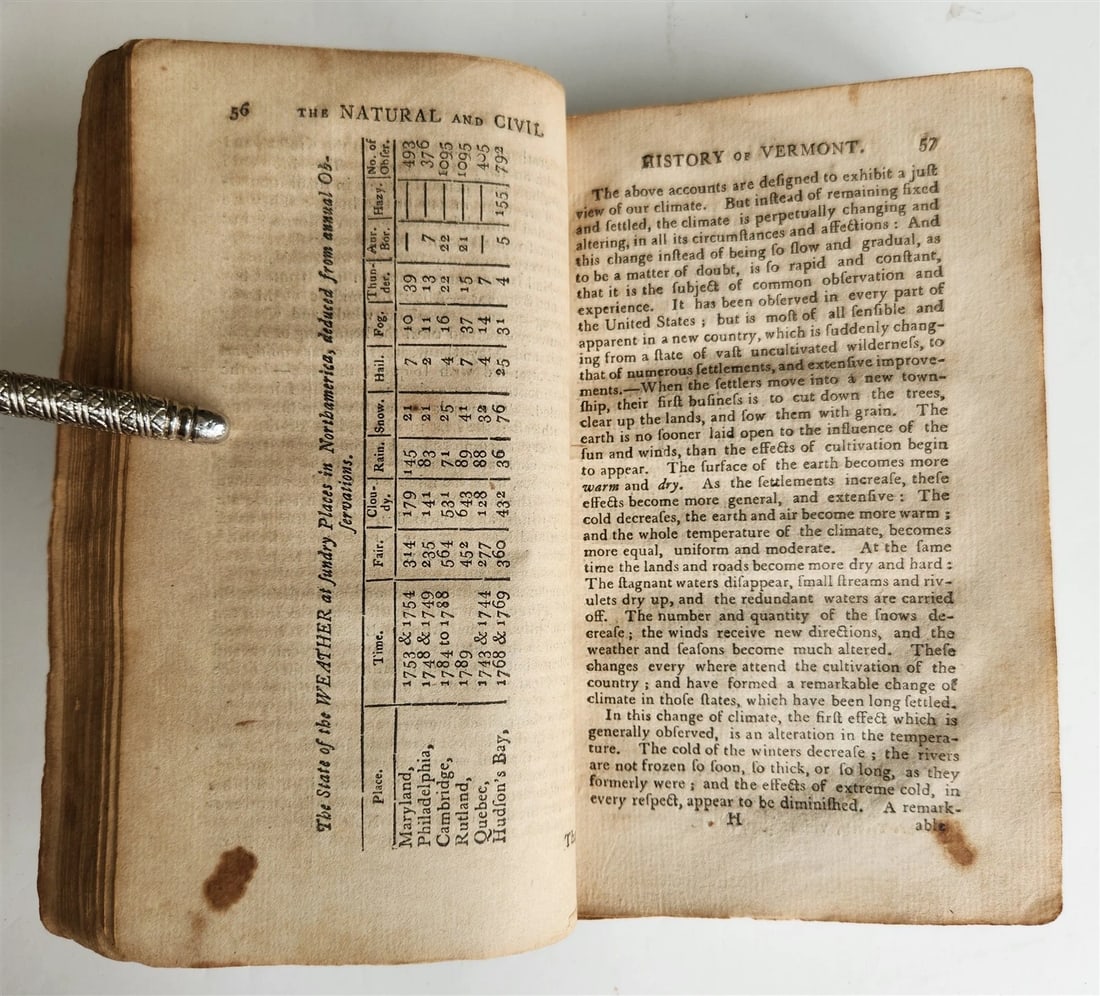 56 THE NATURAL AND CIVIL
The State of the WEATHER at ſundry Places in Northamerica, deduced from annual Ob-
ſervations.
Place. Time. Fair. Clou-dy. Rain. Snow. Hail. Fog. Thun-der. Aur. Bor. Hazy. No. of Obſer.
Maryland, 1753 & 1754 314 179 145 21 7 10 39 — — 493
Philadelphia, 1748 & 1749 235 141 83 21 2 11 13 7 — 376
Cambridge, 1784 to 1788 564 531 71 25 4 16 22 22 — 1095
Rutland, 1789 452 643 89 41 7 37 15 21 — 1095
Quebec, 1743 & 1744 277 128 88 32 4 14 7 — — 405
Hudſon's Bay, 1768 & 1769 360 432 36 76 25 31 4 5 155 792
HISTORY OF VERMONT. 57
The above accounts are deſigned to exhibit a juſt
view of our climate. But inſtead of remaining fixed
and ſettled, the climate is perpetually changing and
altering, in all its circumſtances and affections : And
this change inſtead of being ſo ſlow and gradual, as
to be a matter of doubt, is ſo rapid and conſtant,
that it is the ſubject of common obſervation and
experience. It has been obſerved in every part of
the United States ; but is moſt of all ſenſible and
apparent in a new country, which is ſuddenly chang-
ing from a ſtate of vaſt uncultivated wilderneſs, to
that of numerous ſettlements, and extenſive improve-
ments.—When the ſettlers move into a new town-
ſhip, their firſt buſineſs is to cut down the trees,
clear up the lands, and ſow them with grain. The
earth is no ſooner laid open to the influence of the
ſun and winds, than the effects of cultivation begin
to appear. The ſurface of the earth becomes more
warm and dry. As the ſettlements increaſe, theſe
effects become more general, and extenſive : The
cold decreaſes, the earth and air become more warm ;
and the whole temperature of the climate, becomes
more equal, uniform and moderate. At the ſame
time the lands and roads become more dry and hard :
The ſtagnant waters diſappear, ſmall ſtreams and riv-
ulets dry up, and the redundant waters are carried
off. The number and quantity of the ſnows de-
creaſe ; the winds receive new directions, and the
weather and ſeaſons become much altered. Theſe
changes every where attend the cultivation of the
country ; and have formed a remarkable change of
climate in thoſe ſtates, which have been long ſettled.
In this change of climate, the firſt effect which is
generally obſerved, is an alteration in the tempera-
ture. The cold of the winters decreaſe ; the rivers
are not frozen ſo ſoon, ſo thick, or ſo long, as they
formerly were ; and the effects of extreme cold, in
every reſpect, appear to be diminiſhed. A remark-
H able